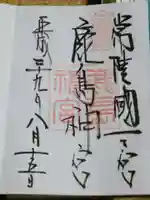 常陸國一之宮
鹿島神宮
平成二十九年八月十五日